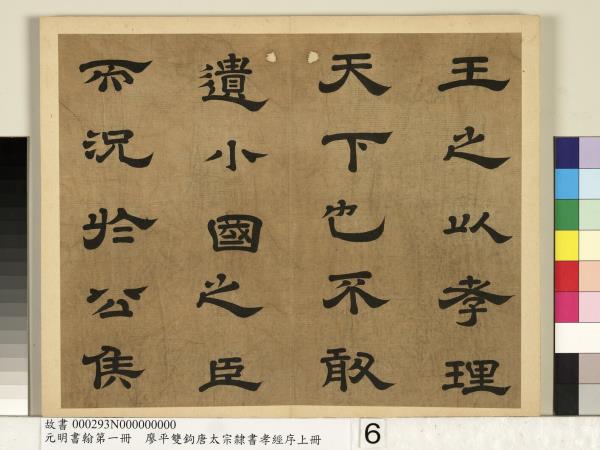 王之以孝理
天下也不敢
遺小國之臣
而況於公侯
故書 000293N000000000
元明書翰第一冊 廖平雙鉤唐太宗隸書孝經序上冊
6